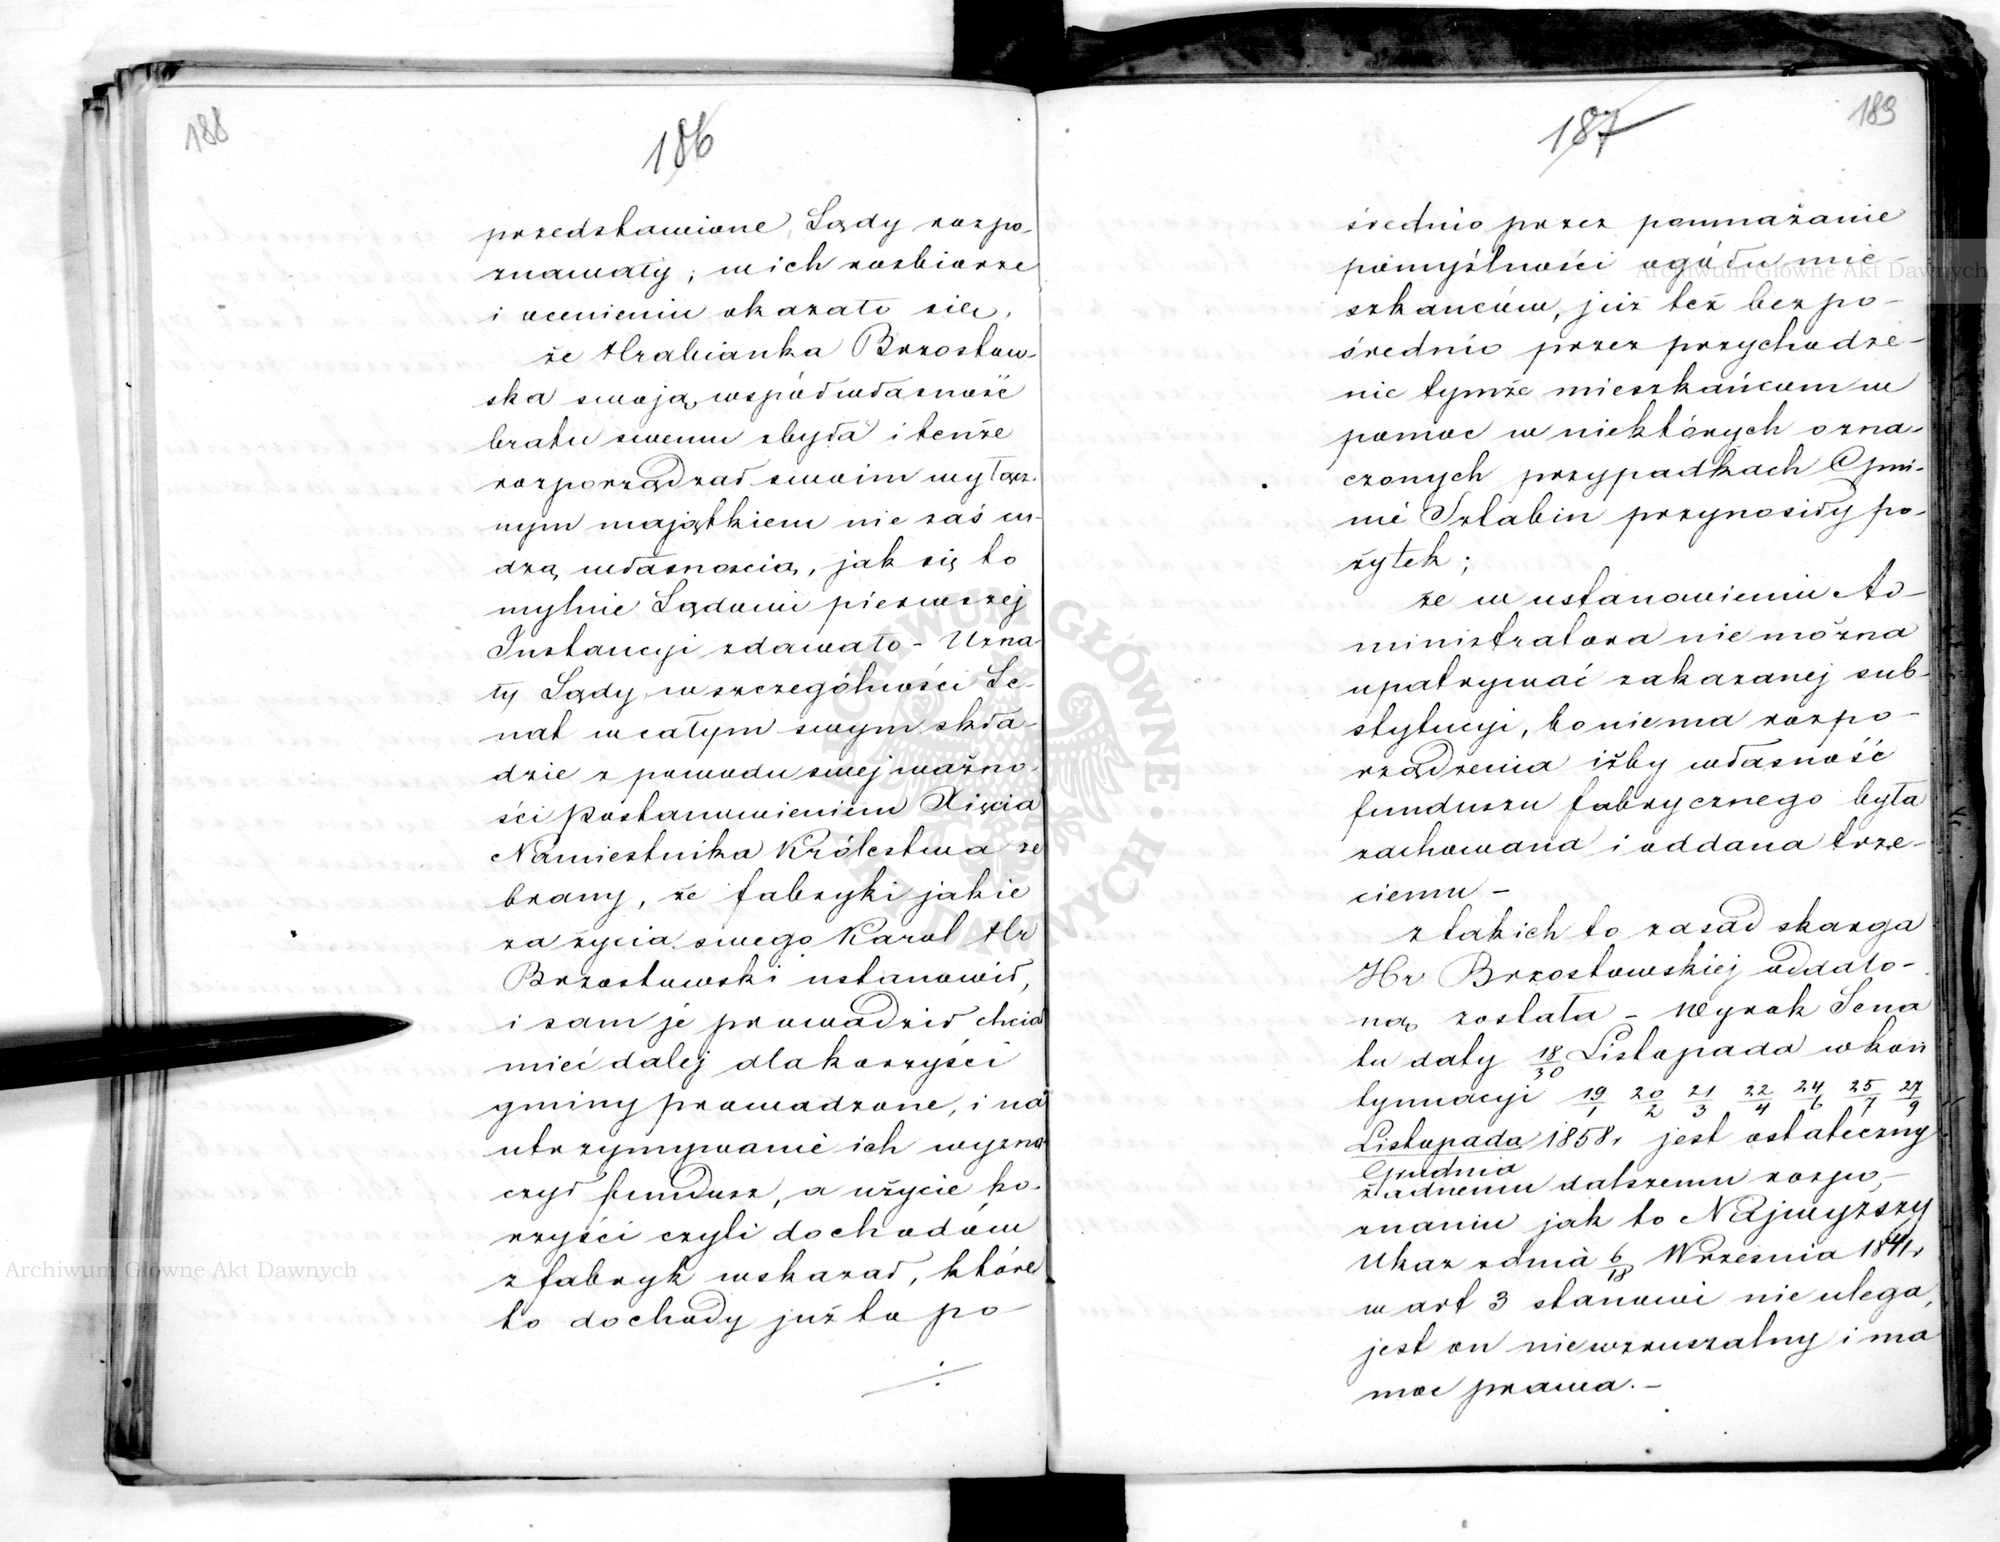 188
186
przedstawione, Sądy rozpo-
znawały; w ich rozbiorze
i ocenieniu okazało się,
że Hrabianka Brzostow-
ska swoją współwłasność
bratu swemu zbyła i tenże
rozporządzał swoim wyłącz-
nym majątkiem nie zaś cu-
dzą własnoscią, jak się to
mylnie Sądowi pierwszej
Instancyi zdawało - Uzna-
ły Sądy w szczególności Se-
nat w całym swym skła-
dzie z powodu swej ważno-
ści Postanowieniem Xięcia
Namiestnika Królestwa ze
brany, że fabryki jakie
za życia swego Karol Hr
Brzostowski ustanowił,
i sam je prowadził chciał
mieć dalej dla korzyści
gminy prowadzone, i na
utrzymywanie ich wyzna-
czył fundusz, a użycie ko-
rzyści czyli dochodów
z fabryk wskazał, które
to dochody już to po-
189
187
średnio przez pomnażanie
pomyślności ogółu mie-
szkańców, już też bezpo-
średnio przez przychodze-
nie tymże mieszkańcom w
pomoc w niektórych ozna-
czonych przypadkach Gmi-
nie Sztabin przynosiły po-
żytek;
że w ustanowieniu Ad-
ministratora nie można
upatrywać zakazanej sub-
stytucyi, bo niema rozpo-
rządzenia iżby własność
funduszu fabrycznego była
zachowana i oddana trze-
ciemu -
z takich to zasad skarga
Hr Brzostowskiej oddalo-
ną została - Wyrok Sena
tu daty 18/30 Listopada w kon
tynuacyi 19/1 20/2 21/3 22/4 24/6 25/7 27/9
Listopada 1858 r jest ostateczny
Grudnia
żadnemu dalszemu rozpo-
znaniu jak to Najwyższy
Ukaz z dnia 6/18 Wrzesnia 1841 r
w art 3 stanowi nie ulega,
jest on niewzruszalny i ma
moc prawa. -
Archiwum Główne Akt Dawnych
Archiwum Główne Akt Dawnych
ARCHIWUM GŁÓWNE AKT DAWNYCH